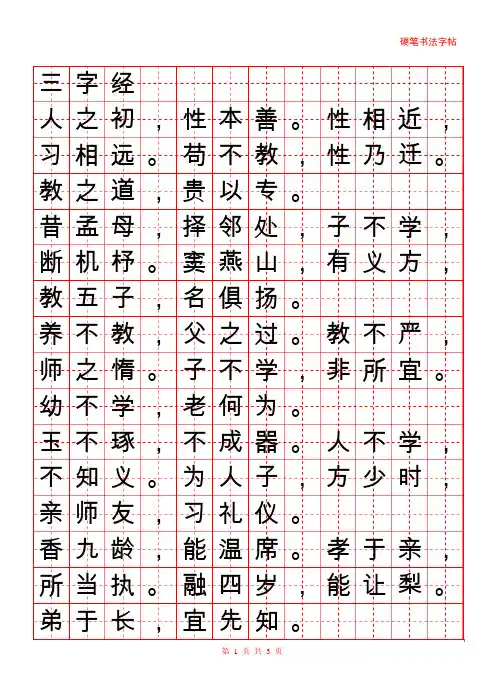 硬笔书法字帖
三字经
人之初，性本善。性相近，
习相远。苟不教，性乃迁。
教之道，贵以专。
昔孟母，择邻处，子不学，
断机杼。窦燕山，有义方，
教五子，名俱扬。
养不教，父之过。教不严，
师之惰。子不学，非所宜。
幼不学，老何为。
玉不琢，不成器。人不学，
不知义。为人子，方少时，
亲师友，习礼仪。
香九龄，能温席。孝于亲，
所当执。融四岁，能让梨。
弟于长，宜先知。
第 1 页 共 3 页